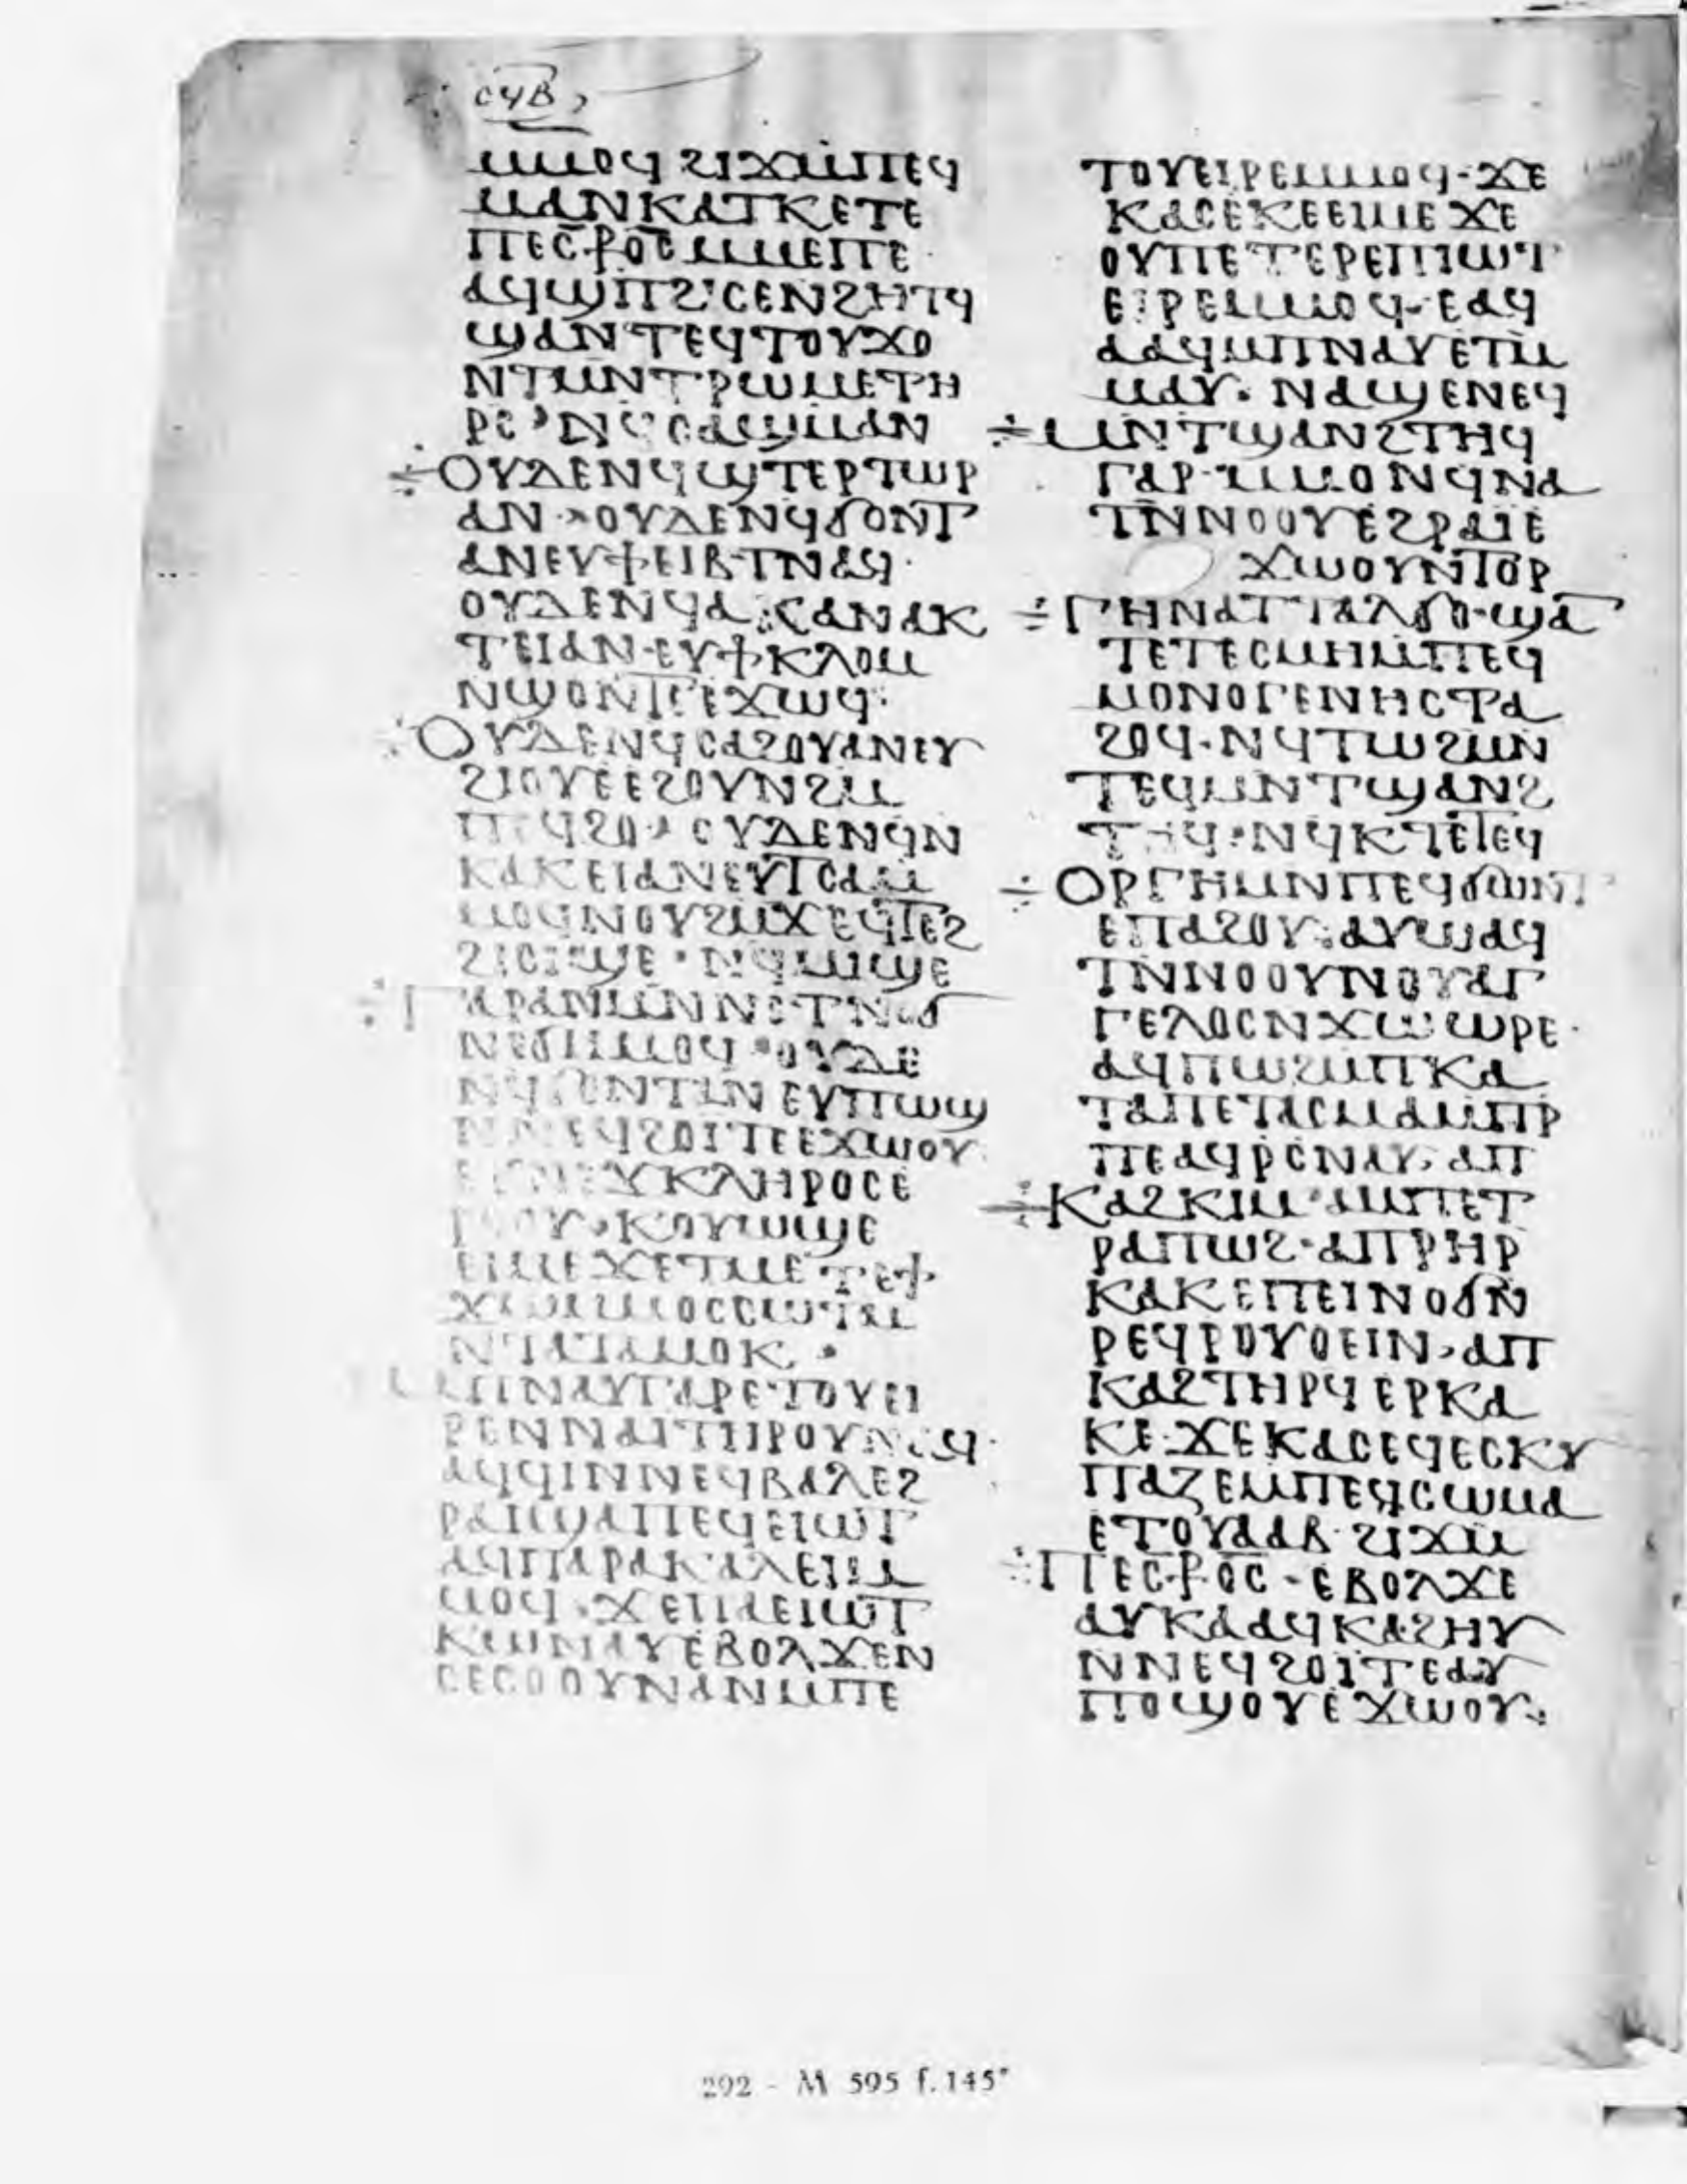 ⲥϥⲃ
ⲙⲙⲟϥ ϩⲓϫⲙⲡⲉϥ
ⲙⲁⲛⲕⲁⲧⲕⲉⲧⲉ
ⲡⲉⲥⳁⲟⲥⲙⲙⲉⲡⲉ
ⲁϥϣⲡϩⲓⲥⲉⲛϩⲏⲧϥ
ϣⲁⲛⲧⲉϥⲧⲟⲩϫⲟ
ⲛⲧⲙⲛⲧⲣⲱⲙⲉⲧⲏ
ⲟⲩⲇⲉⲛϥϣⲧⲉⲣⲧⲱⲣ
ⲁⲛ· ⲟⲩⲇⲉⲛϥϭⲟⲛⲧ
ⲁⲛⲉⲩϯⲉⲓⲃⲧⲛⲁϥ·
ⲟⲩⲇⲉⲛϥⲁⲅⲁⲛⲁⲕ
ⲧⲉⲓⲁⲛ·ⲉⲩϯⲕⲗⲟⲙ
ⲛϣⲟⲛⲧⲉⲉϫⲱϥ·
ⲟⲩⲇⲉⲛϥⲥⲁϩⲟⲩⲁⲛⲉⲩ
ϩⲓⲟⲩⲉⲉϩⲟⲩⲛϩⲙ
ⲡⲉϥϩⲟ· ⲟⲩⲇⲉⲛϥⲛ
ⲕⲁⲕⲉⲓⲁⲛⲉⲩⲧⲥⲟⲙ
ⲙⲟϥⲛⲟⲩϩⲙϫⲉϥⲧⲉϩ
ϩⲓⲥⲓϣⲉ· ⲛϥⲙⲓϣⲉ
ⲅⲁⲣⲁⲛⲙⲛⲛⲉⲧⲛⲟϭ
ⲛⲉϭⲙⲙⲟϥ· ⲟⲩⲇⲉ
ⲛϥϭⲟⲛⲧⲁⲛ ⲉⲩⲡⲱϣ
ⲛⲛⲉϥϩⲟⲓⲧⲉⲉϫⲱⲟⲩ
ⲉⲩⲛⲉϫⲕⲗⲏⲣⲟⲥⲉ
ⲣⲟⲟⲩ· ⲕⲟⲩⲱϣⲉ
ⲉⲓⲙⲉϫⲉⲧⲙⲉⲧⲉϯ
ϫⲱⲙⲙⲟⲥⲥⲱⲧⲙ
ⲛⲧⲁⲧⲁⲙⲟⲕ·
ⲙⲡⲛⲁⲩⲅⲁⲣⲉⲧⲟⲩⲉⲓ
ⲣⲉⲛⲛⲁⲓⲧⲏⲣⲟⲩⲛⲁϥ·
ⲁϥϥⲓⲛⲛⲉϥⲃⲁⲗⲉϩ
ⲣⲁⲓϣⲁⲡⲉϥⲉⲓⲱⲧ
ⲁϥⲡⲁⲣⲁⲕⲁⲗⲉⲓⲙ
ⲙⲟϥ·ϫⲉⲡⲁⲉⲓⲱⲧ
ⲕⲱⲛⲁⲩⲉⲃⲟⲗϫⲉⲛ
ⲥⲉⲥⲟⲟⲩⲛⲁⲛⲙⲡⲉ
ⲧⲟⲩⲉⲓⲣⲉⲙⲙⲟϥ·ϫⲉ
ⲕⲁⲥⲉⲕⲉⲉⲓⲙⲉ ϫⲉ
ⲟⲩⲡⲉⲧⲉⲣⲉⲡⲓⲱⲧ
ⲉⲓⲣⲉⲙⲙⲟϥ·ⲉⲁϥ
ⲁⲁϥⲙⲡⲛⲁⲩⲉⲧⲙ
ⲙⲁⲩ· ⲛⲁϣⲉⲛⲉϥ
ⲙⲛⲧϣⲁⲛϩⲧⲏϥ
ⲅⲁⲣ·ⲙⲙⲟⲛϥⲛⲁ
ⲧⲛⲛⲟⲟⲩⲉϩⲣⲁⲓⲉ
ϫⲱⲟⲩⲛⲧⲟⲣ
ⲅⲏⲛⲁⲧⲧⲁⲗϭⲟ·ϣⲁ
ⲧⲉⲧⲉⲥⲙⲏⲙⲡⲉϥ
ⲙⲟⲛⲟⲅⲉⲛⲏⲥⲧⲁ
ϩⲟϥ·ⲛϥⲧⲱϩⲙⲛ
ⲧⲉϥⲙⲛⲧϣⲁⲛϩ
ⲧⲏϥ·ⲛϥⲕⲧⲉⲧⲉϥ
ⲟⲣⲅⲏⲙⲛⲡⲉϥϭⲱⲛⲧ
ⲉⲡⲁϩⲟⲩ·ⲁⲩⲱⲁϥ
ⲧⲛⲛⲟⲟⲩⲛⲟⲩⲁⲅ
ⲅⲉⲗⲟⲥⲛϫⲱⲱⲣⲉ·
ⲁϥⲡⲱϩⲙⲡⲕⲁ
ⲧⲁⲡⲉⲧⲁⲥⲙⲁⲙⲡⲣ
ⲡⲉⲁϥⲣⲥⲛⲁⲩ·ⲁⲡ
ⲕⲁϩⲕⲓⲙ·ⲙⲡⲉⲧ
ⲣⲁⲡⲱϩ·ⲁⲡⲣⲏⲣ
ⲕⲁⲕⲉⲡⲉⲓⲛⲟϭⲛ
ⲣⲉϥⲣⲟⲩⲟⲉⲓⲛ·ⲁⲡ
ⲕⲁϩⲧⲏⲣϥⲉⲣⲕⲁ
ⲕⲉ·ϫⲉⲕⲁⲥⲉϥⲉⲥⲕⲩ
ⲡⲁⲍⲉⲙⲡⲉϥⲥⲱⲙⲁ
ⲉⲧⲟⲩⲁⲁⲃ·ϩⲓϫⲙ
ⲡⲉⲥⳁⲟⲥ·ⲉⲃⲟⲗϫⲉ
ⲁⲩⲕⲁⲁϥⲕⲁϩⲏⲩ
ⲛⲛⲉϥϩⲟⲓⲧⲉⲁⲩ
ⲡⲟϣⲟⲩⲉϫⲱⲟⲩ·
292 - M 595 f.145ᵛ